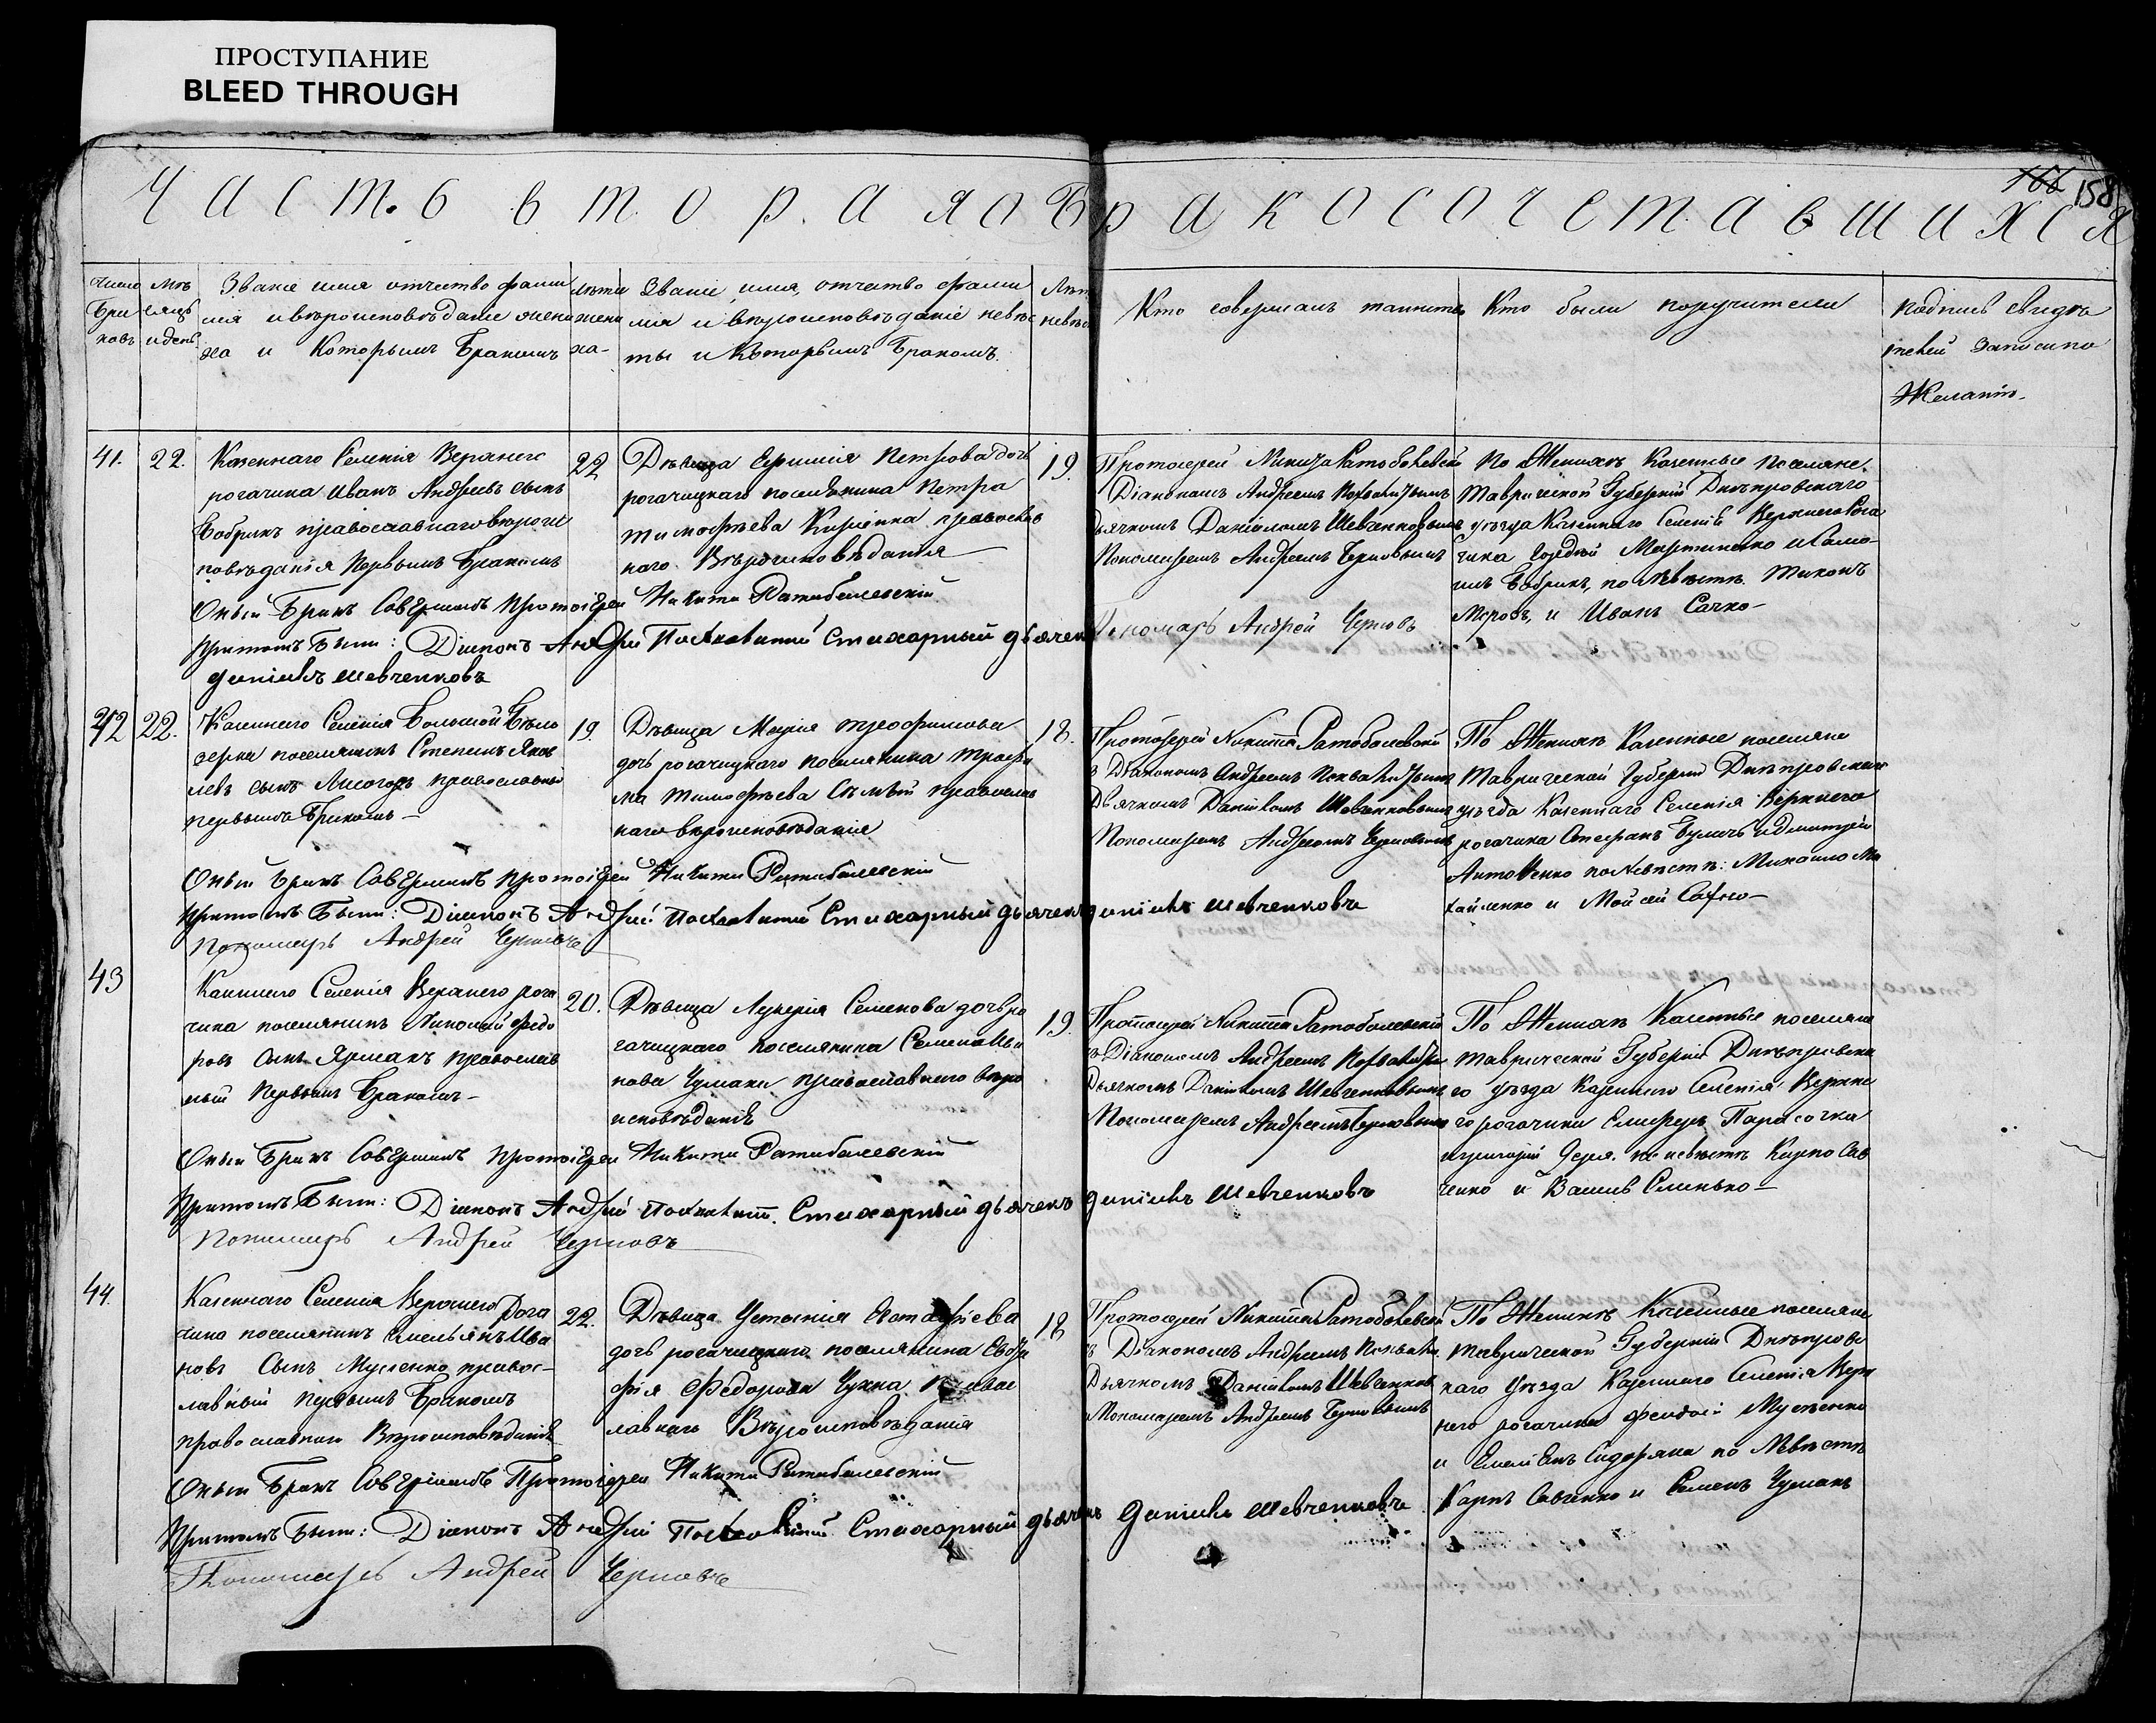 ПРОСТУПАНИЕ
BLEED THROUGH
166 158
Часть вторая о Бракосочетавшихся
Число Бра ковъ
мѣ сяцъ и день
Званіе имя отчество фами
лія и вѣроисповѣданіе жени
ха и Которымъ Бракомъ
лѣта жени ха
Званіе, имя, отчество фами
лія и вѣроисповѣданіе невѣс
ты и Которымъ Бракомъ.
Лѣта невѣс
Кто совершалъ таинство
Кто были поручители
Подпись свидѣ
телей записи по
Желанію.
41.
22.
Казеннаго Селенія Верхняго
рогачика Иванъ Андреевъ сынъ
Бобрикъ православнаго вѣроис
повѣданія Первымъ Бракомъ
22
Дѣвица Петрова дочь
рогачицкаго поселянина Петра
тимофѣева православ
наго Вѣроисповѣданія
19.
Протоіерей Никита Ратоболевскій
Діакономъ Андреемъ
Дьячкомъ Даніиломъ Шевченковымъ
Пономаремъ Андреемъ Черновымъ
По Женихѣ Казенные Поселяне
Таврической Губерніи Днѣпровскаго
уѣзда Казеннаго Селенія Верхняго Рога
чика Мартиненко и
Бобрикъ, по Невѣстѣ Тихонъ
Морозъ, и Иванъ Сачко
Оный Бракъ Совершалъ протоіерей Никита Ратиболевскій
Притомъ Были: Діаконъ Андрей Стихарный дьячекъ
даніилъ шевченковъ
Пономарь Андрей Черновъ
42
22.
Казеннаго Селенія Большой Бѣло
зерки поселянинъ Степанъ Яков
левъ сынъ Лисогоръ православный
первымъ Бракомъ
19.
Дѣвица Марія трофимова
дочь рогачицкаго поселянина Трофи
ма тимофѣева православ
наго вѣроисповѣданія
18.
Протоіерей Никита Ратоболевскій
з Діакономъ Андреемъ
Дьячкомъ Даніиломъ Шевченковымъ
Пономаремъ Андреемъ Черновымъ
По Женихѣ Казенные поселяне
Таврической Губерніи Днѣпровскаго
уѣзда Казеннаго Селенія Верхняго
рогачика Стефанъ и дмитрій
по Невѣстѣ: Михайло Ми
хайленко и Мойсей
Оный Бракъ Совершалъ протоіерей Никита Ратиболевскій
Притомъ Были: Діаконъ Андрей Стихарный дьячекъ даніилъ шевченковъ
Пономарь Андрей Черновъ
43
Казеннаго Селенія Верхняго рога
чика поселянинъ Николай Федо
ровъ Сынъ Ярмакъ православ
ный Первымъ Бракомъ
20.
Дѣвица Лукерія Семенова дочь ро
гачицкаго поселянина Семена Ива
нова Чумака православнаго вѣро
исповѣданія
19.
Протоіерей Никита Ратоболевскій
з Діакономъ Андреемъ
Дьячкомъ Даніиломъ Шевченковымъ
Пономаремъ Андреемъ Черновымъ
По Женихѣ Казенные поселяне
Таврической Губерніи Днѣпровска
го уѣзда Казеннаго Селенія Верхня
го рогачика Парасочка
и григорій по невѣстѣ Карпо Сав
ченко и Василь Слинько
Оный Бракъ Совершалъ протоіерей Никита Ратиболевскій
Притомъ Были: Діаконъ Андрей Стихарный дьячекъ даніилъ Шевченковъ
Пономарь Андрей Черновъ
44.
Казеннаго Селенія Верхняго Рога
чика поселянинъ Емельянъ Ива
новъ Сынъ Мусенко правос
лавный первымъ Бракомъ
православнаго Вѣроисповѣданія
22.
Дѣвица Устинія Евстафіева
дочь рогачицкаго поселянина Евста
фія Федорова православ
лавнаго Вѣроисповѣданія
18
Протоіерей Никита Ратоболевскій
з Діакономъ Андреемъ
Дьячкомъ Даніиломъ Шевченков
Пономаремъ Андреемъ Черновымъ
По Женихѣ Казенные поселяне
Таврической Губерніи Днѣпровс
каго Уѣзда Казеннаго Селенія Верх
няго рогачика Феодосій Мусѣенко
и Сидоряка по Невѣстѣ
Карпъ Савченко и Семенъ Чумакъ
Оный Бракъ Совершалъ Протоіерей Никита Ратиболевскій
Притомъ Были: Діаконъ Андрей Стихарный дьячекъ даніилъ шевченковъ
Пономарь Андрей Черновъ